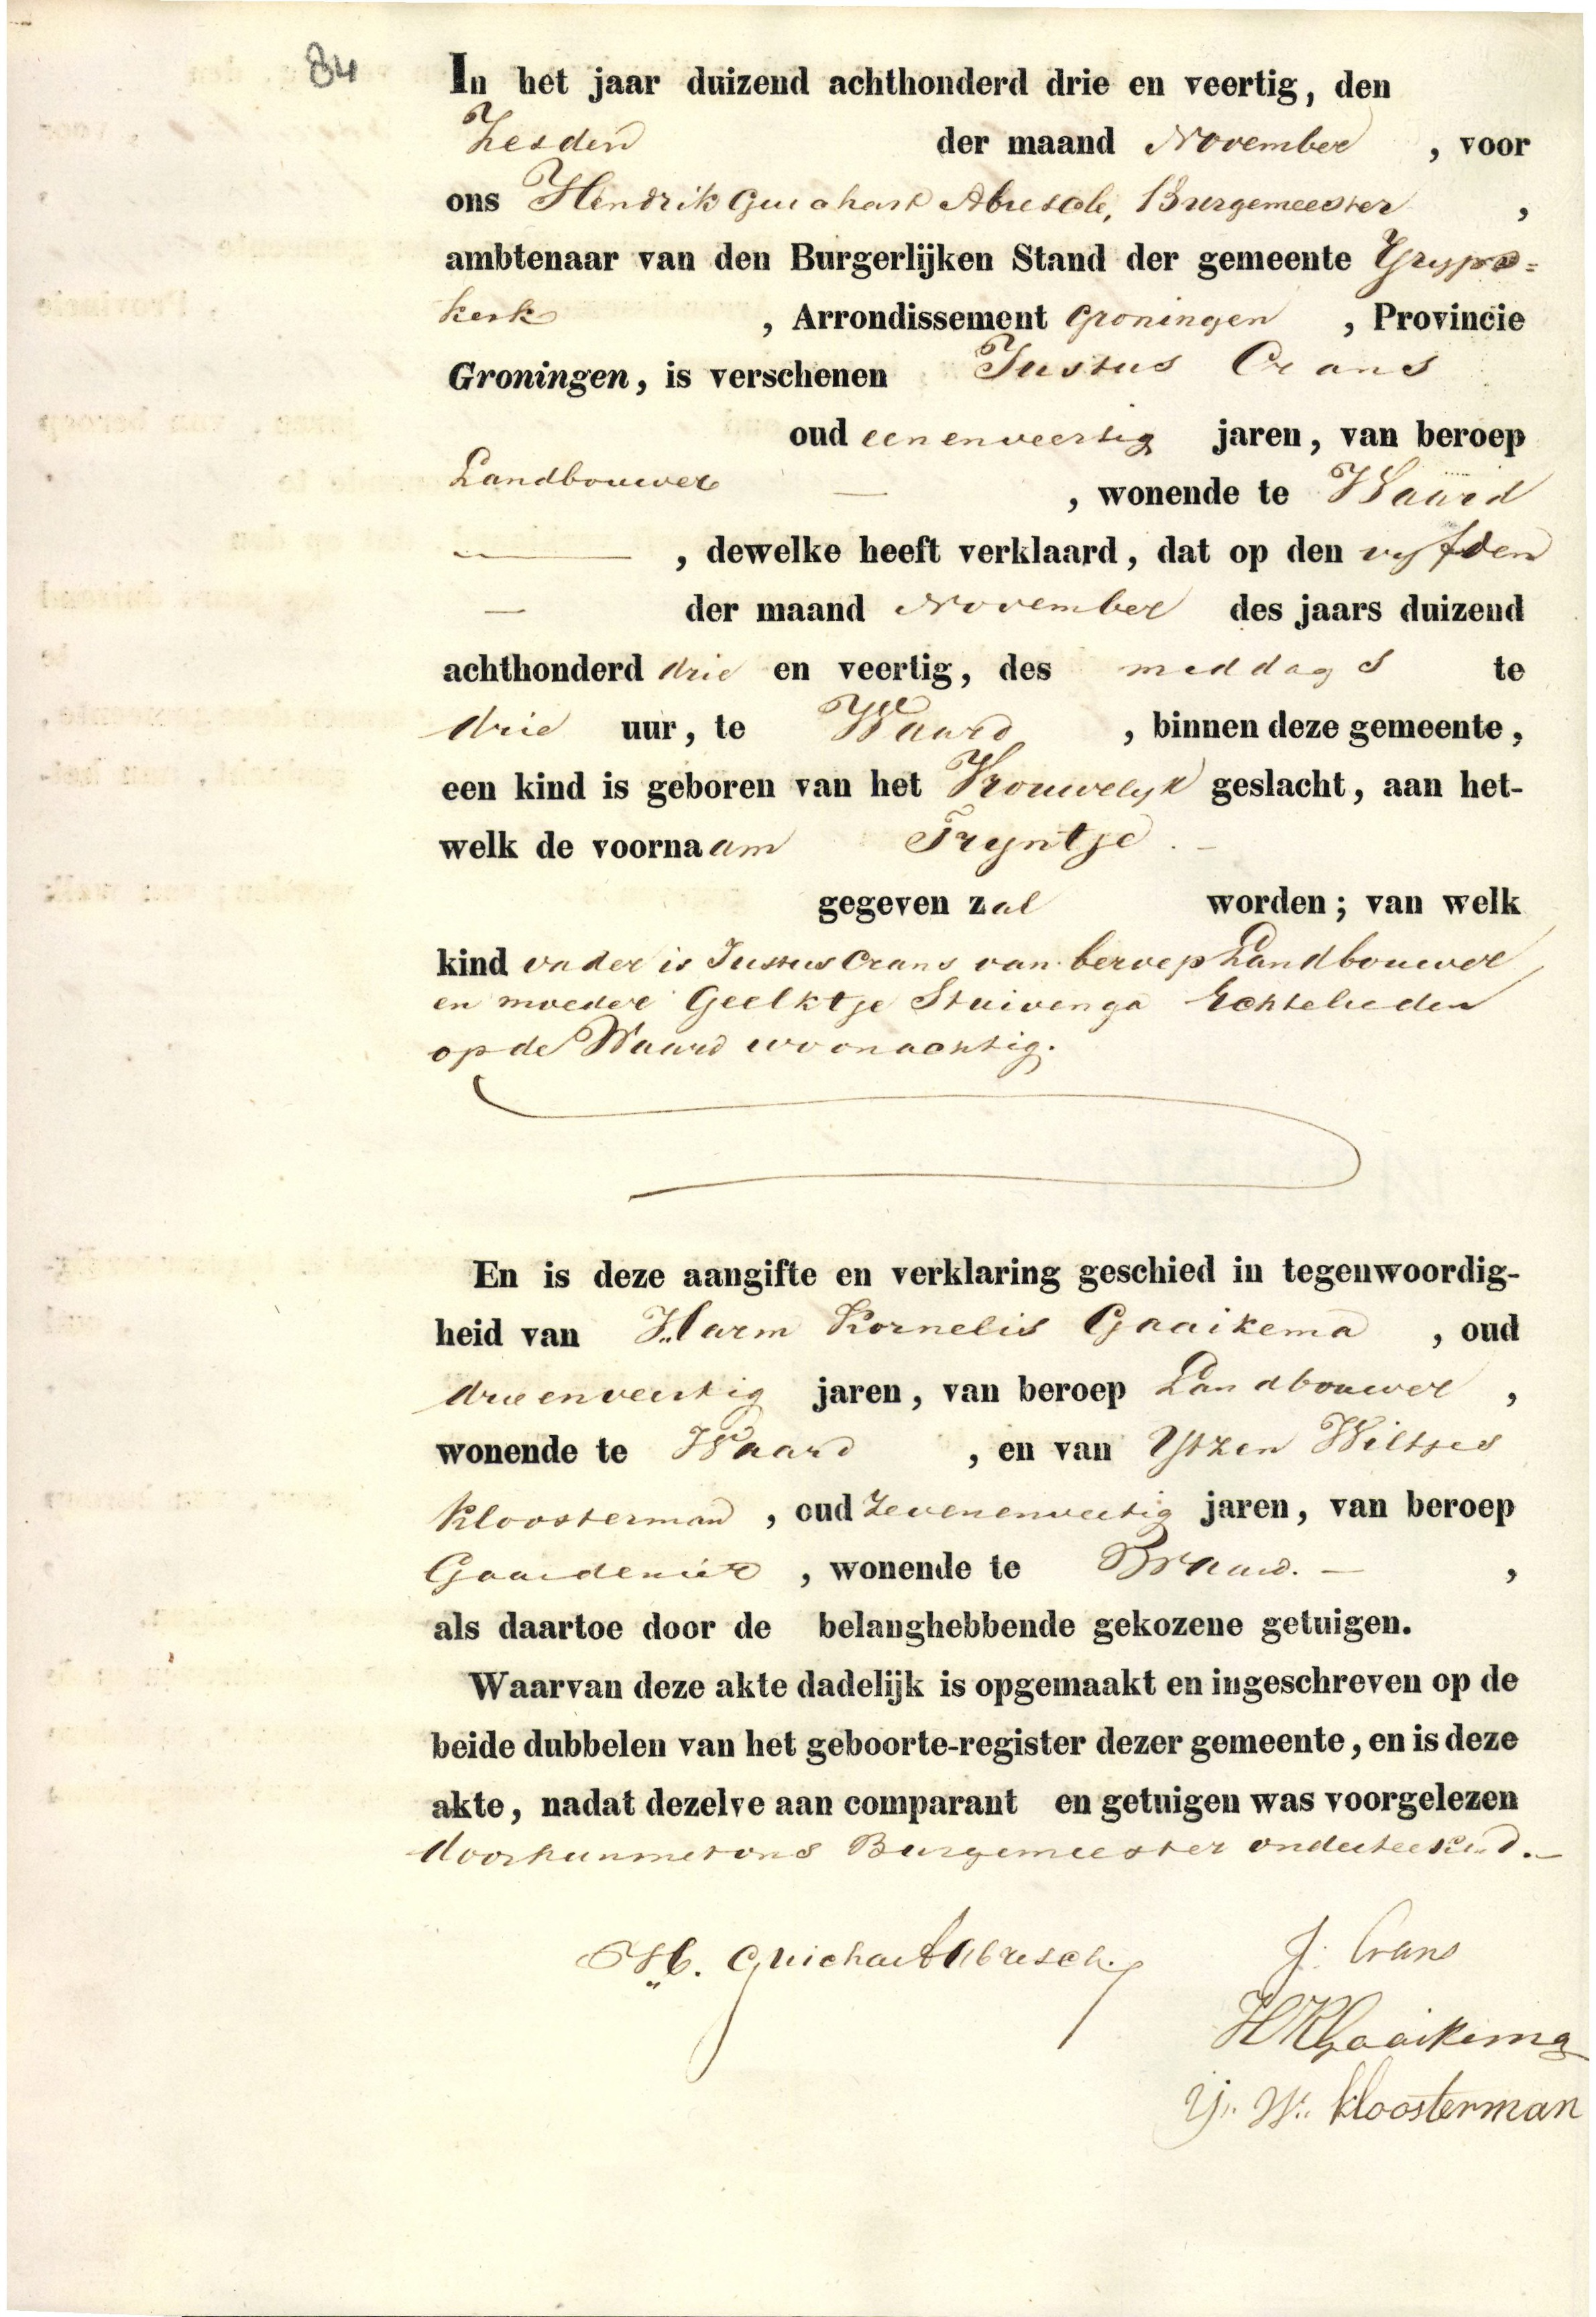 84
In het jaar duizend achthonderd drie en veertig, den
Zesden der maand November , voor
ons Hendrik Guichart Abresch, Burgemeester ,
ambtenaar van den Burgerlijken Stand der gemeente Gryps=
kerk , Arrondissement Groningen , Provincie
Groningen, is verschenen Justus Crans
oud eenenveertig jaren, van beroep
Landbouwer — , wonende te Waard
— , dewelke heeft verklaard, dat op den vyfden
— der maand November des jaars duizend
achthonderd drie en veertig, des middags te
drie uur, te Waard , binnen deze gemeente,
een kind is geboren van het Vrouwelyk geslacht, aan het-
welk de voornaam Tryntje. —
gegeven zal worden; van welk
kind vader is Justus Crans van beroep Landbouwer
en moeder Geelktje Stuivenga Echtelieden
op de Waard woonachtig.
En is deze aangifte en verklaring geschied in tegenwoordig-
heid van Harm Kornelis Gaaikema , oud
drieenveertig jaren, van beroep Landbouwer ,
wonende te Waard , en van Ytzen Wiltjes
Kloosterman , oud Zevenenveertig jaren, van beroep
Gaardenier , wonende te —,
als daartoe door de belanghebbende gekozene getuigen.
Waarvan deze akte dadelijk is opgemaakt en ingeschreven op de
beide dubbelen van het geboorte-register dezer gemeente, en is deze
akte, nadat dezelve aan comparant en getuigen was voorgelezen
door hun met ons Burgemeester onderteekend. —
H. Guichart Abresch. J. Crans
HKGaaikema
Y. W. Kloosterman